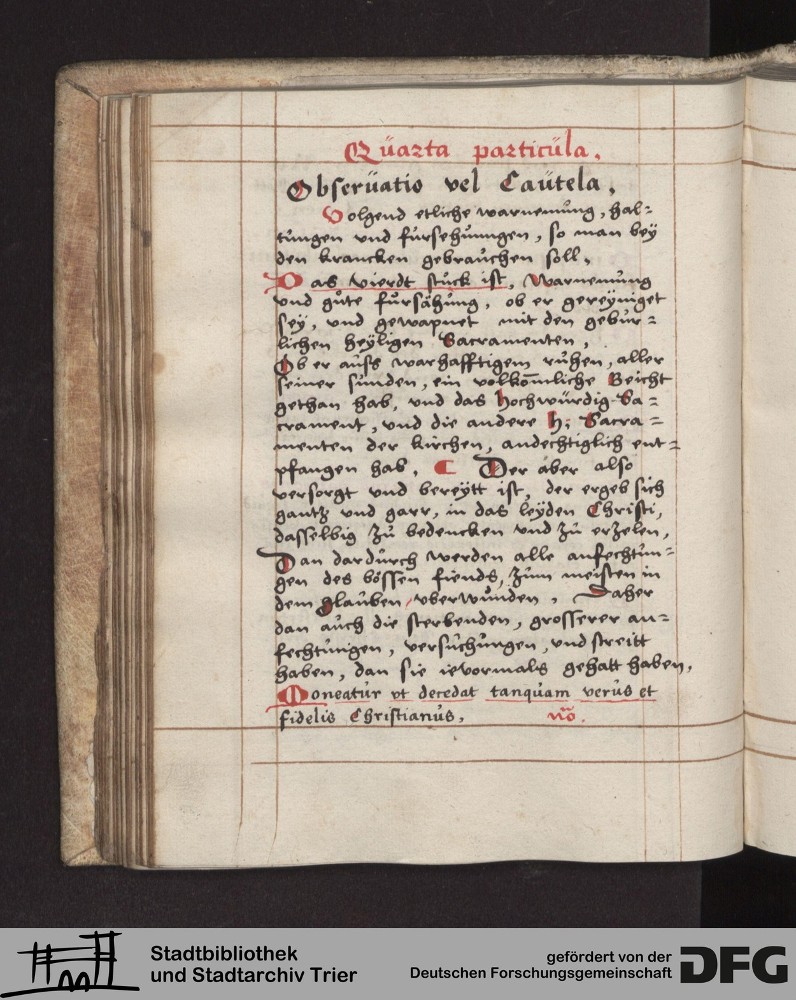 Quarta particula.
Observatio vel Cautela.
Volgend etliche warnemung, hal=
tungen vnd fursehunngen, so man bey
den krancken gebrauchen soll.
Das vierdt stuck ist, Warnemung
vnd gute fursähung, ob er gereyniget
sey, vnd gewapnet mit den gebur=
lichen heyligen Sacramenten,
Ob er auss warhafftigem ruhen, aller
seiner sunden, ein volkom̄liche Beicht
gethan hab, vnd das hochwürdig Sa=
crament, vnd die andere h: Sacra=
menten der kirchen, andechtiglich ent=
pfangen hab. Der aber also
versorgt vnd bereytt ist, der ergeb sich
gantz vnd garr, in das leyden Christi,
dasselbig zu bedencken vnd zu erzelen,
Dan dardurch werden alle anfechtun=
gen des bössen fiends, zum meisten in
dem glauben vberwunden. Daher
dan auch die sterbenden, grosserer an=
fechtungen, versuchungen, vnd streitt
haben, dan sie ievormals gehatt haben,
Moneatur vt decedat tanquam verus et
fidelis Christianus. nõ.
Stadtbibliothek
und Stadtarchiv Trier
gefördert von der
Deutschen Forschungsgemeinschaft
DFG